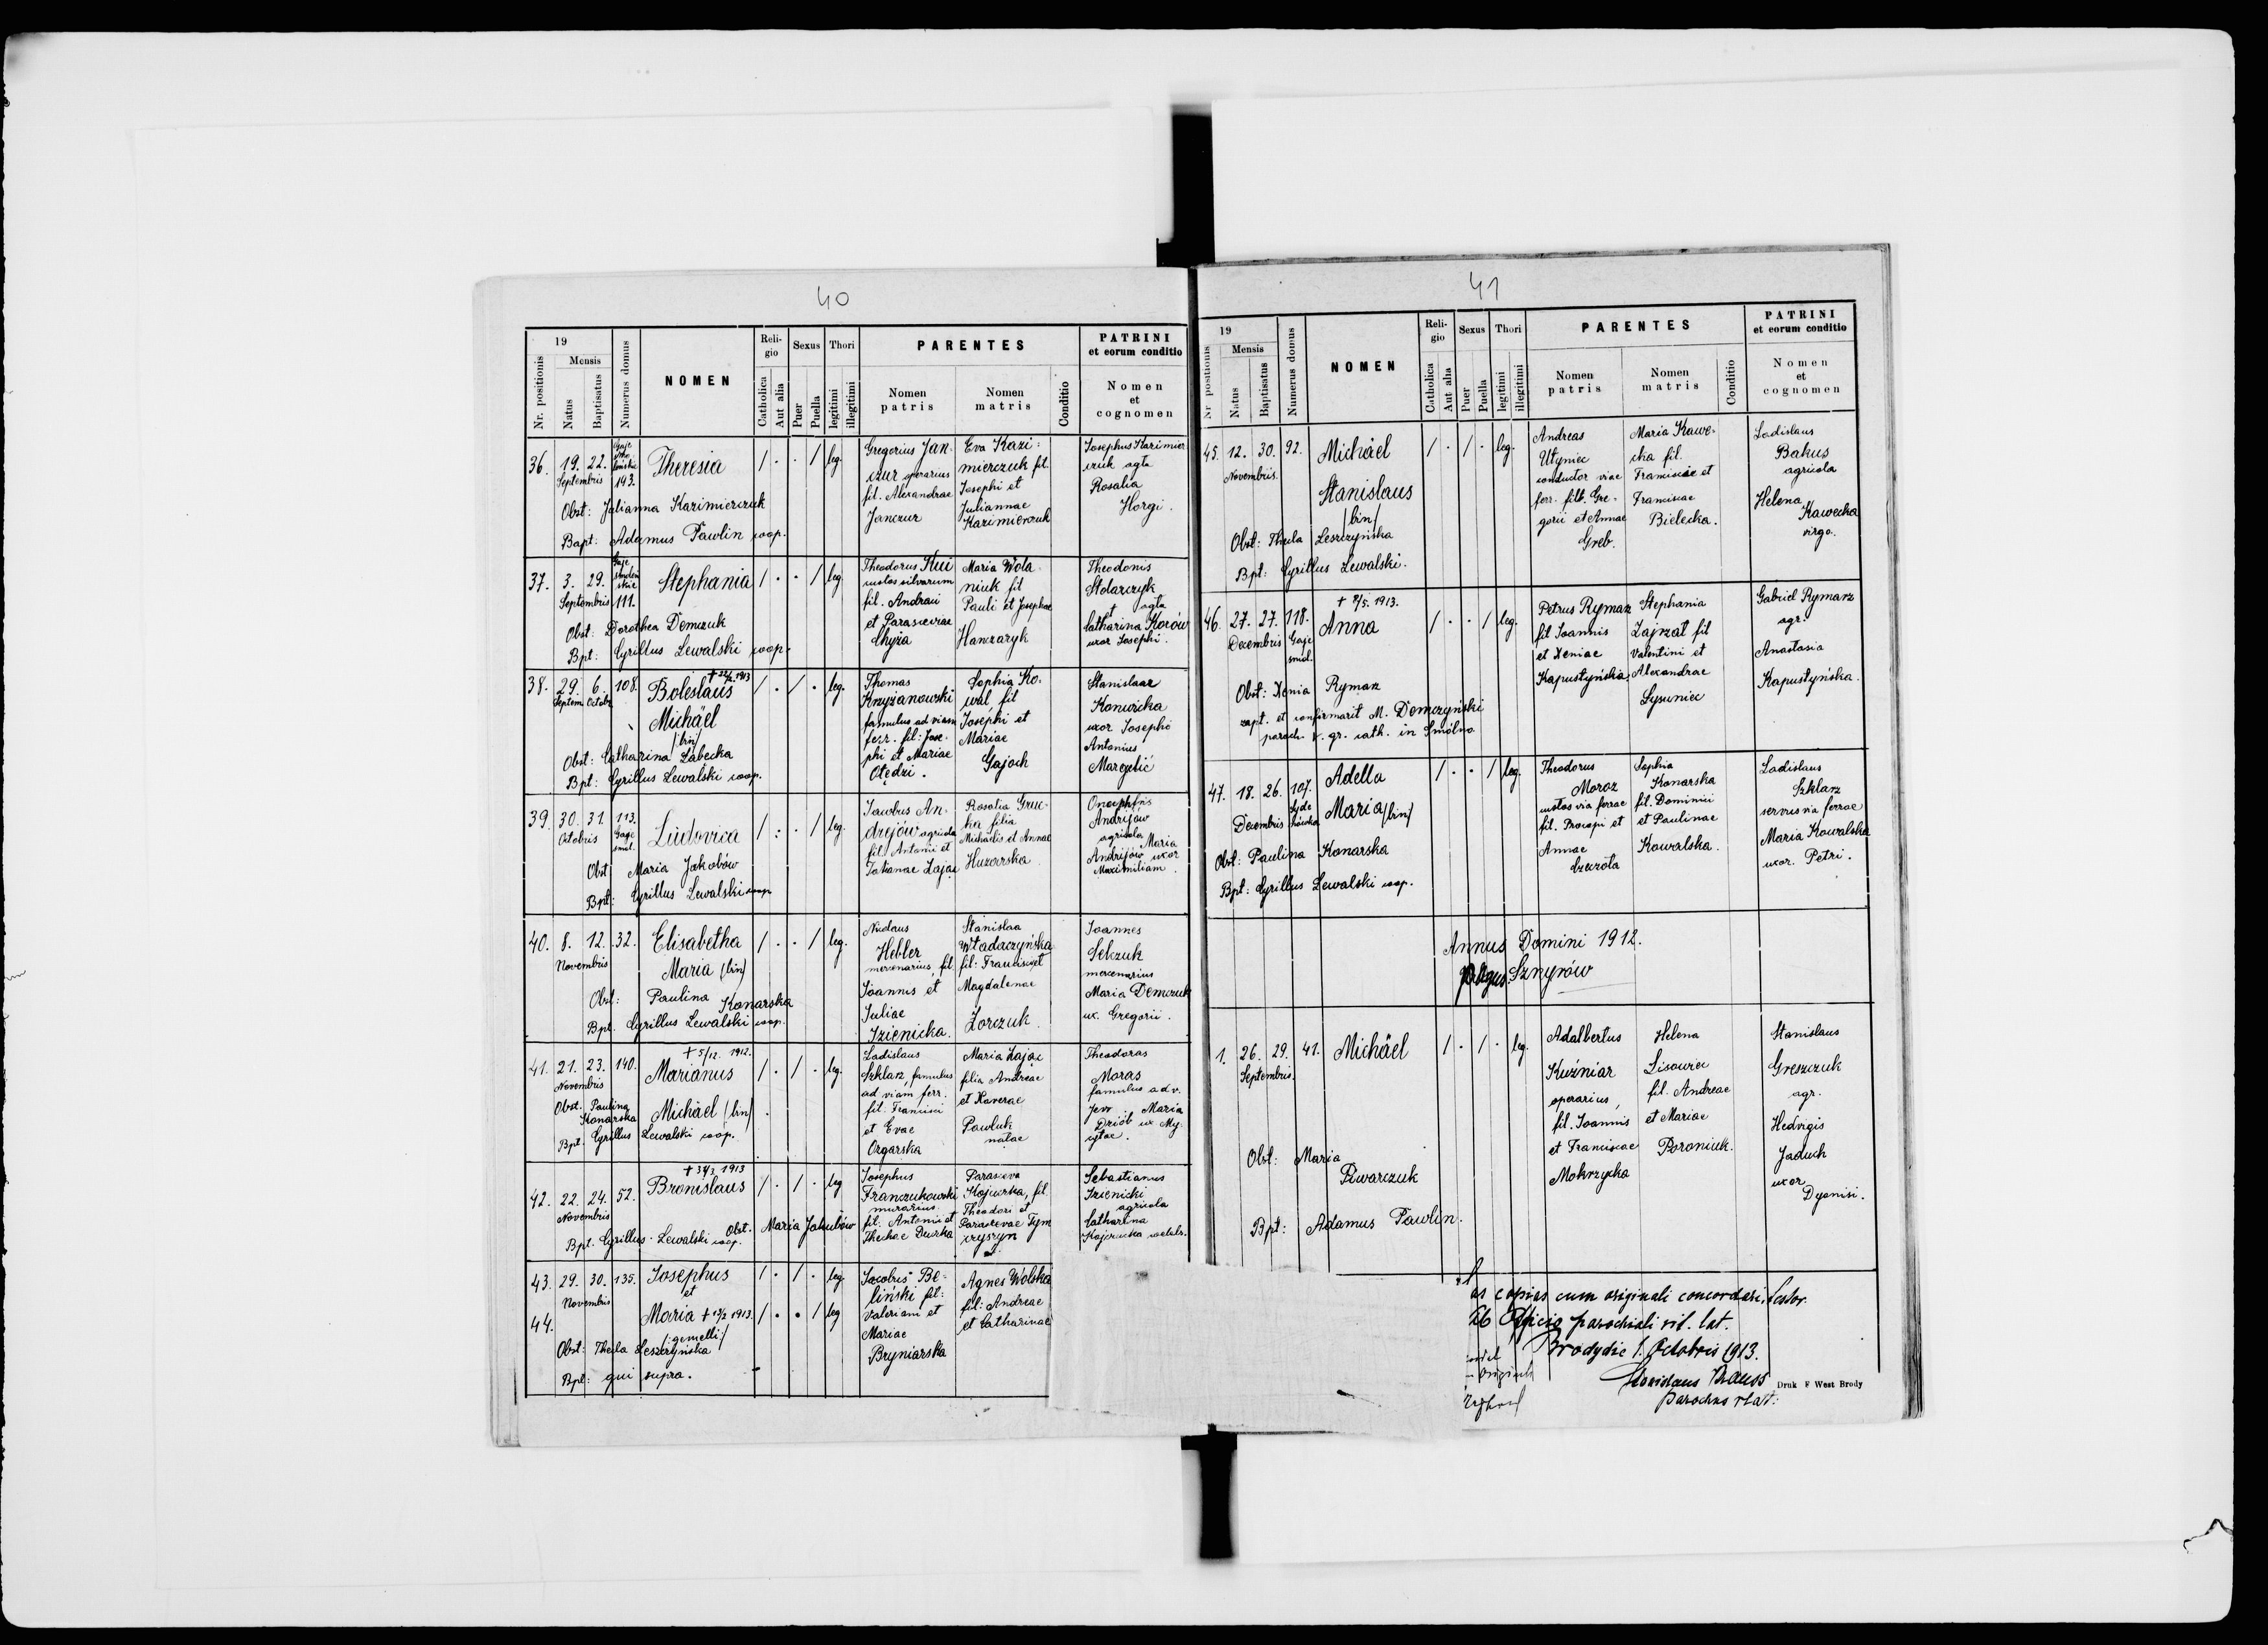 40
19
Nr. positionis
Mensis
Natus
Baptisatus
Numerus domus
NOMEN
Religio
Catholica
Aut alia
Sexus
Puer
Puella
Thori
legitimi
illegitimi
PARENTES
Nomen patris
Nomen matris
Conditio
PATRINI
et eorum conditio
Nomen et cognomen
36. 19. 22. Septembris 193. Theresia / . . / leg.
Gregorius Janczur
fil. Alexandrae
Janczur
Eva Kazimierczuk fil.
Josephi et
Juliannae
Kazimierczuk
Josephus Kazimierczuk agla
Rosalia
Horgi.
Obst: Julianna Kazimierczuk
Bapt: Adamus Pawlin coop.
37. 3. 29. Septembris 111. Stephania / . . / leg.
Theodorus
custos silvarum
fil. Andreae
et Parascevae
Chyża
Maria Wolaniuk fil
Pauli et Josephae
Hanczaryk
Theodonis
Stolarczyk
agla
Catharina Korów
uxor Josephi.
Obst: Dorothea Demczuk
Bpt: Cyrillus Lewalski coop.
38. 29. 6. Septem. Octobr. 108. Boleslaus / . / . leg.
Michäel
/bin/
Thomas
Krzyżanowski
famulus ad viam
ferr. fil: Josephi et Mariae
Otędzi.
Sophia Kowal, fil
Josephi et
Mariae
Gajoch
Stanislaae
Konwicka
uxor Josephi
Antonius
Obst: Catharina Łabecka
Bpt: Cyrillus Lewalski coop.
39. 30. 31. Octobris 113. Gaje smol. Ludovica / : . / leg.
Jacobus Andrejów agricola
fil. Antonii et
Tatianae Zając
Rosalia
filia
Michaelis et Annae
Huzarska
Andrijów
agricola
Maria
Andrijów uxor
Maximiliani.
Obst Maria Jakobów
Bpt: Cyrillus Lewalski coop.
40. 8. 12. Novembris 32. Elisabetha / . . / leg.
Maria /bin/
Hebler
mercenarius, fil.
Joannis et
Juliae
Izienicka.
Stanislaa
Władaczyńska
fil: Francisci et
Magdalenae
Zorczuk.
Joannes
Selczuk
mercenarius
Maria Demczuk
ux. Gregorii.
Obst: Paulina Konarska
Bpt. Cyrillus Lewalski coop.
41. 21. 23. Novembris 140. + 5/12. 1912.
Marianus / . / . leg.
Michäel /bin/
Ladislaus
Szklarz, famulus
ad viam ferr.
fil: Francisci
et Evae
Ozgarska
Maria Zając
filia Andreae
et Xaverae
Pawluk
natae
Theodorus
Moras
famulus ad v.
ferr. Maria
Dziób ux My-
Obst. Paulina Konarska
Bpt. Cyrillus Lewalski coop.
42. 22. 24. Novembris 52. 1913
Bronislaus / . / . leg
Josephus
Franczukowski
murarius
fil. Antonii et
Theclae
Parasceva
fil.
Theodori et
Parascevae
Sebastianus
Izienicki
agricola
Catharina
Obst. Maria Jakubów
Bpt. Cyrillus Lewalski coop.
43. 29. 30. Novembris 135. Josephus / . / . leg.
et
44. Maria + 13/2 1913. / . . / leg
/:gemelli:/
Jacobus Beliński fil:
Valeriani et
Mariae
Bryniarska
Agnes Wolska
fil: Andreae
et Catharinae
Obst: Thecla Leszczyńska
Bpt: qui supra.
41
19
Nr positionis
Mensis
Natus
Baptisatus
Numerus domus
NOMEN
Religio
Catholica
Aut alia
Sexus
Puer
Puella
Thori
legitimi
illegitimi
PARENTES
Nomen patris
Nomen matris
Conditio
PATRINI
et eorum conditio
Nomen et cognomen
45. 12. 30. Novembris. 92. Michäel / . / . leg.
Stanislaus
/bin/
Andreas
Utyniec
conductor viae
ferr. Gregorii et Annae
Greb.
Maria Kawecka fil.
Franciscae et
Franciscae
Bielecka.
Ladislaus
Bakus
agricola
Helena
Kawecka
virgo.
Obst: Thecla Leszczyńska
Bpt: Cyrillus Lewalski.
46. 27. 27. Decembris 118. Gaje smol. 1913.
Anna / . . / leg.
Petrus Rymarz
fil Joannis
et Xeniae
Kapustyńska.
Stephania
Zajrzat fil
Valentini et
Alexandrae
Łysuniec
Gabriel Rymarz
agr.
Anastasia
Kapustyńska.
Obst: Xenia Rymarz
bapt. et confirmavit M. Demczyński
paroch. r. gr. cath. in Smólno
47. 18. 26. Decembris 107. Adella / . . / leg.
Maria /bin/
Theodorus
Moroz
custos via ferrae
fil. Procopi et
Annae
Czerota
Sophia
Konarska
fil. Dominici
et Paulinae
Kowalska.
Ladislaus
Szklarz
servus via ferrae
Maria Kowalska
uxor. Petri.
Obst: Paulina Konarska
Bpt: Cyrillus Lewalski coop.
Annus Domini 1912.
Pagus: Sznyrów
1. 26. 29. Septembris. 41. Michäel / . / . leg.
Adalbertus
Kuźniar
operarius,
fil. Joannis
et Franciscae
Mokrzycka
Helena
Lisowiec
fil. Andreae
et Mariae
Poroniuk.
Stanislaus
Greszczuk
agr.
Hedvigis
Jaduch
uxor
Dyonisi.
Obst: Maria
Piwarczuk
Bpt: Adamus Pawlin.
Has copias cum originali concordari, testor.
Ab Officio parochiali rit. lat.
Brody die 1. Octobris 1913.
Stanislaus
parochus r. lat.
Druk F West Brody